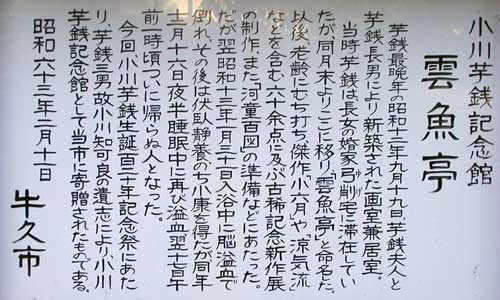 小川芋銭記念館
雲魚亭
芋銭最晩年の昭和十二年九月十九日、芋銭夫人と
芋銭長男により新築された画室兼居室。
当時芋銭は長女の婚家弓削宅に滞在してい
ゆげ
たが同月末よりここに移り「雲魚亭」と命名だ。
以後、老齢にむち打ち、傑作「小六月」や「涼気流」
などを含む六十余点に及ぶ古稀記念新作展
の制作、また「河童百図」の準備などにあたった。
だが翌昭和十三年一月三十一日入浴中に脳溢血で
倒れ、その後は伏臥静養のうち小康を得たが同年
十二月十六日夜半睡眠中に再び溢血、翌十七日午
前一時頃ついに帰らぬ人となった。
今回、小川芋銭生誕百二十年記念祭にあた
り、芋銭三男故小川知可良の遺志により、小川
芋銭記念館として当市に寄贈されたものである。
昭和六十三年二月十一日
牛久市